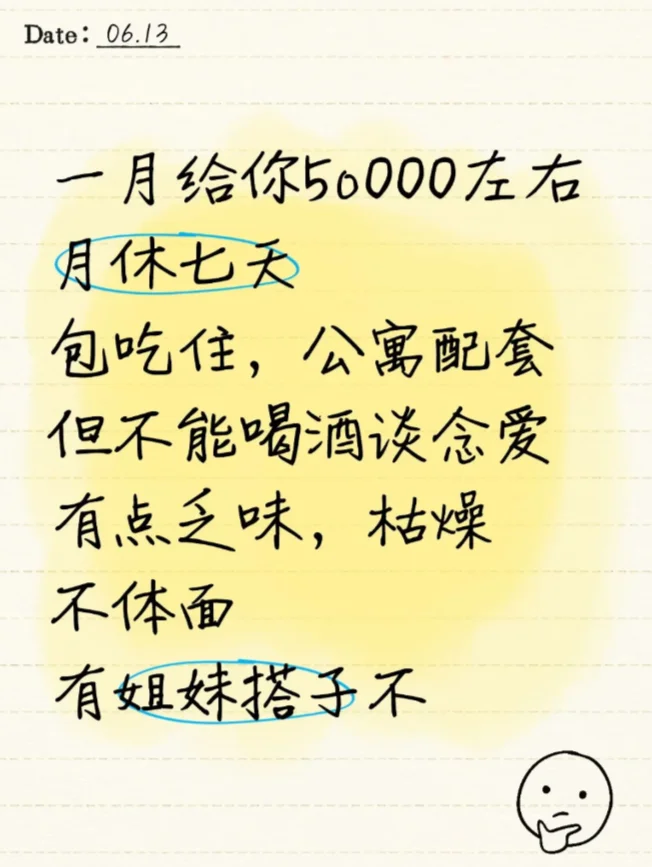 Date: 06.13
一月给你50000左右
月休七天
包吃住，公寓配套
但不能喝酒谈念爱
有点乏味，枯燥
不体面
有姐妹搭子不